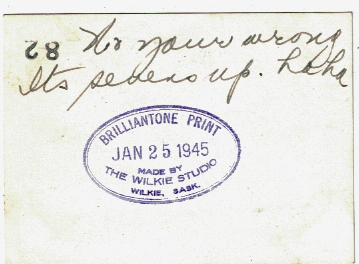 82
No your wrong
Its sevens up. haha
BRILLIANTONE PRINT
JAN 25 1945
MADE BY
THE WILKIE STUDIO
WILKIE, SASK.